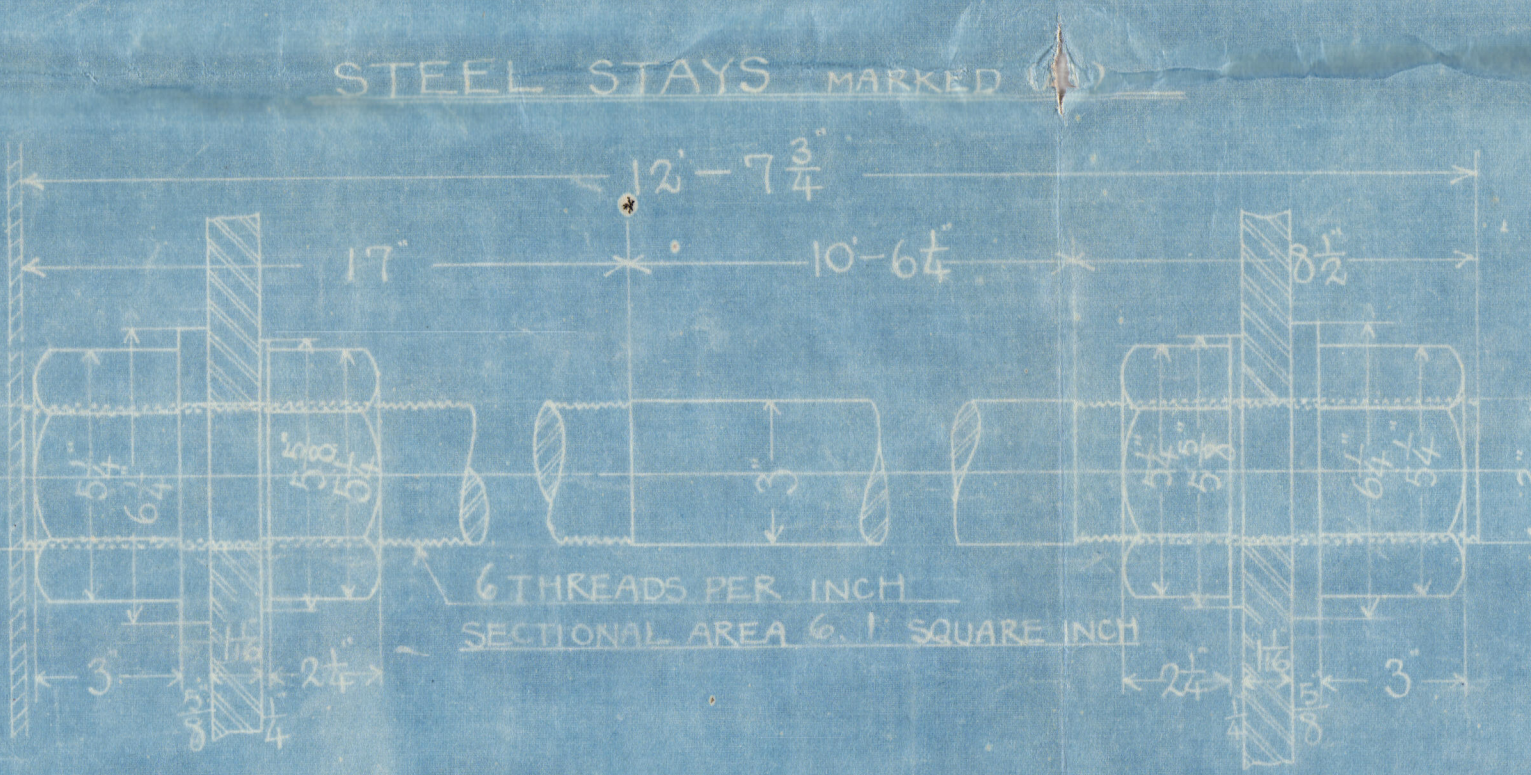 STEEL STAYS MARKED
12' - 7 3/4"
17" 10' - 6 1/4" 8 1/2"
5 1/4" 6 1/4" 5 5/8" 5 1/4" 3" 5 1/4" 5 5/8" 6 1/4" 5 1/4"
6 THREADS PER INCH
SECTIONAL AREA 6.1 SQUARE INCH
3" 5/8" 1 1/16" 1/4" 2 1/4" 2 1/4" 1/4 1 1/16" 5/8" 3"